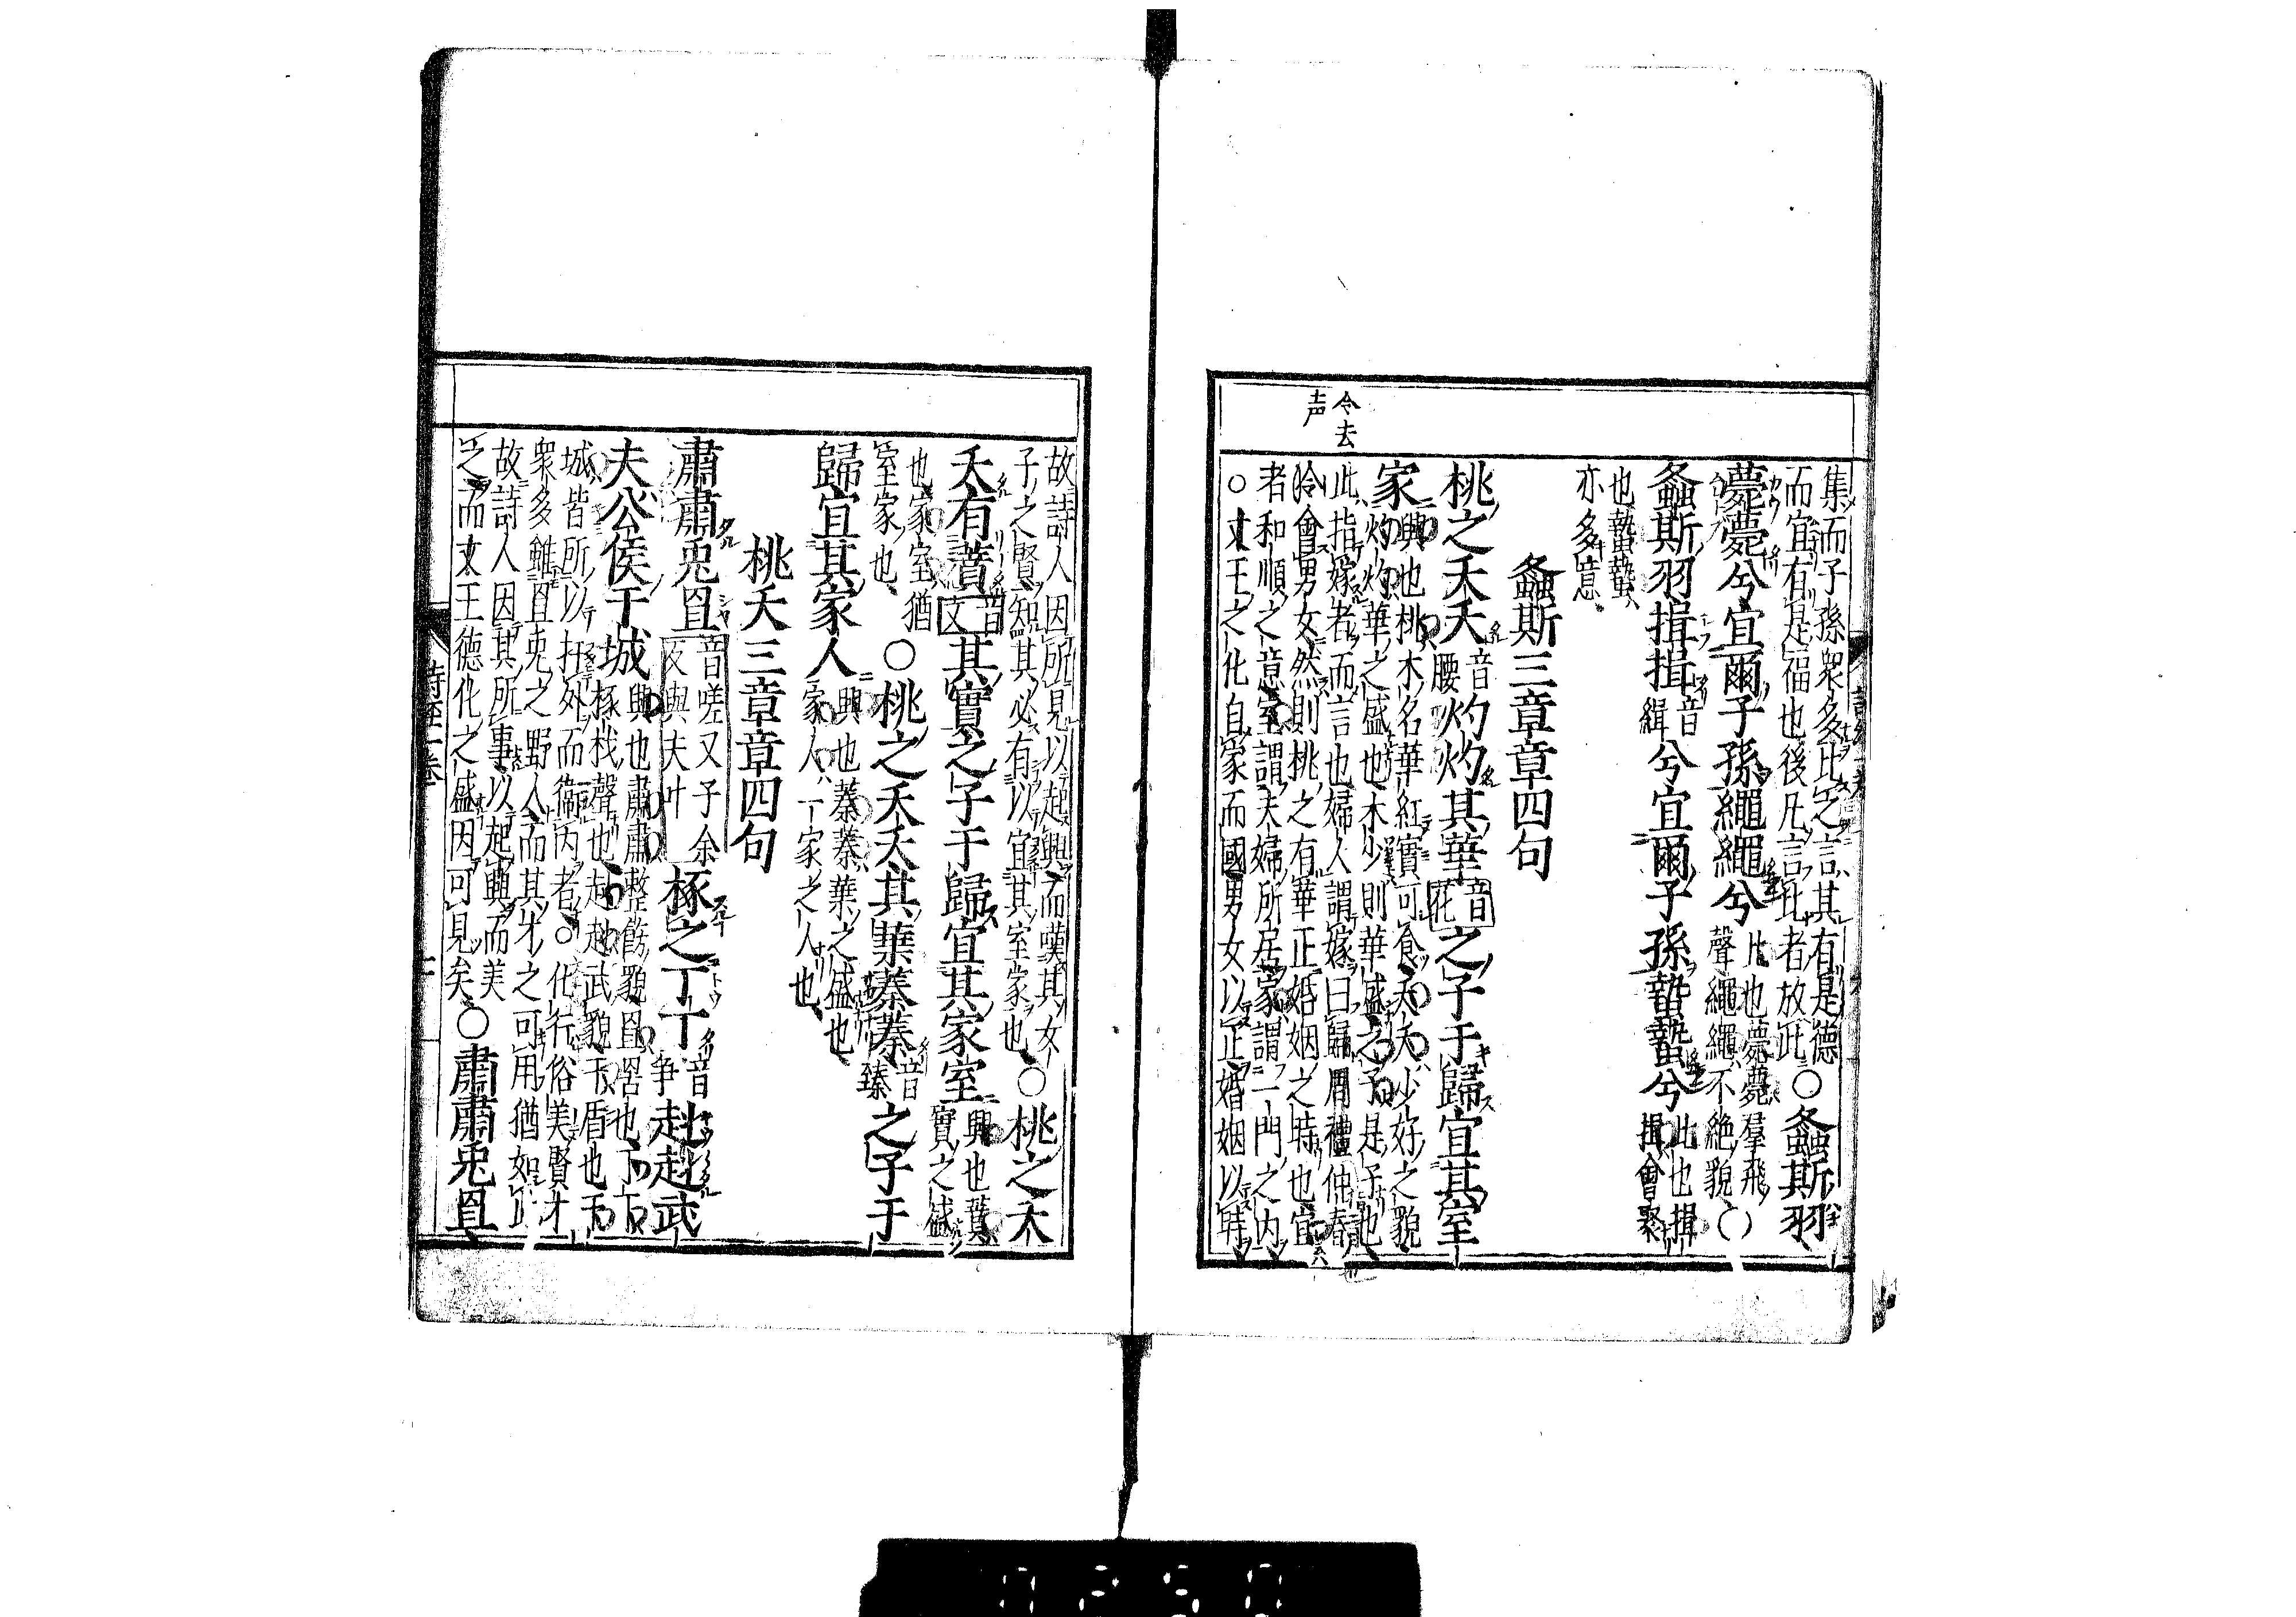 集而子孫衆多比之言其有是德
而宜有是福也後凡言比者放此○螽斯羽
薨薨兮宜爾子孫繩繩兮比也薨薨羣飛
聲繩繩不絶貌○
螽斯羽揖揖音緝兮宜爾子孫蟄蟄兮比也揖揖會聚
也蟄蟄
亦多意
螽斯三章章四句
桃之夭夭音腰灼灼其華音花之子于歸宜其室
家興也桃木名華紅實可食夭夭少好之貌
灼灼華之盛也木少則華盛之子是子也
此指嫁者而言也婦人謂嫁曰歸周禮仲春
令會男女然則桃之有華正婚姻之時也宜
者和順之意室謂夫婦所居家謂一門之内
○文王之化自家而國男女以正婚姻以時
令去
声
故詩人因所見以起興而嘆其女
子之賢知其必有以宜其室家也○桃之夭
夭有蕡音文其實之子于歸宜其家室興也蕡
實之盛
也家室猶
室家也○桃之夭夭其葉蓁蓁音臻之子于
歸宜其家人興也蓁蓁葉之盛也
家人一家之人也
桃夭三章章四句
肅肅兎罝音嗟又子余
反與夫叶椓之丁丁音争赳赳武
夫公侯干城興也肅肅整飭貌罝罟也丁丁
椓杙聲也赳赳武貌干盾也干
城皆所以扞外而衞内者○化行俗美賢才
衆多雖罝兎之野人而其才之可用猶如此
故詩人因其所事以起興而美
之而文王德化之盛因可見矣○肅肅兎罝
詩經一卷